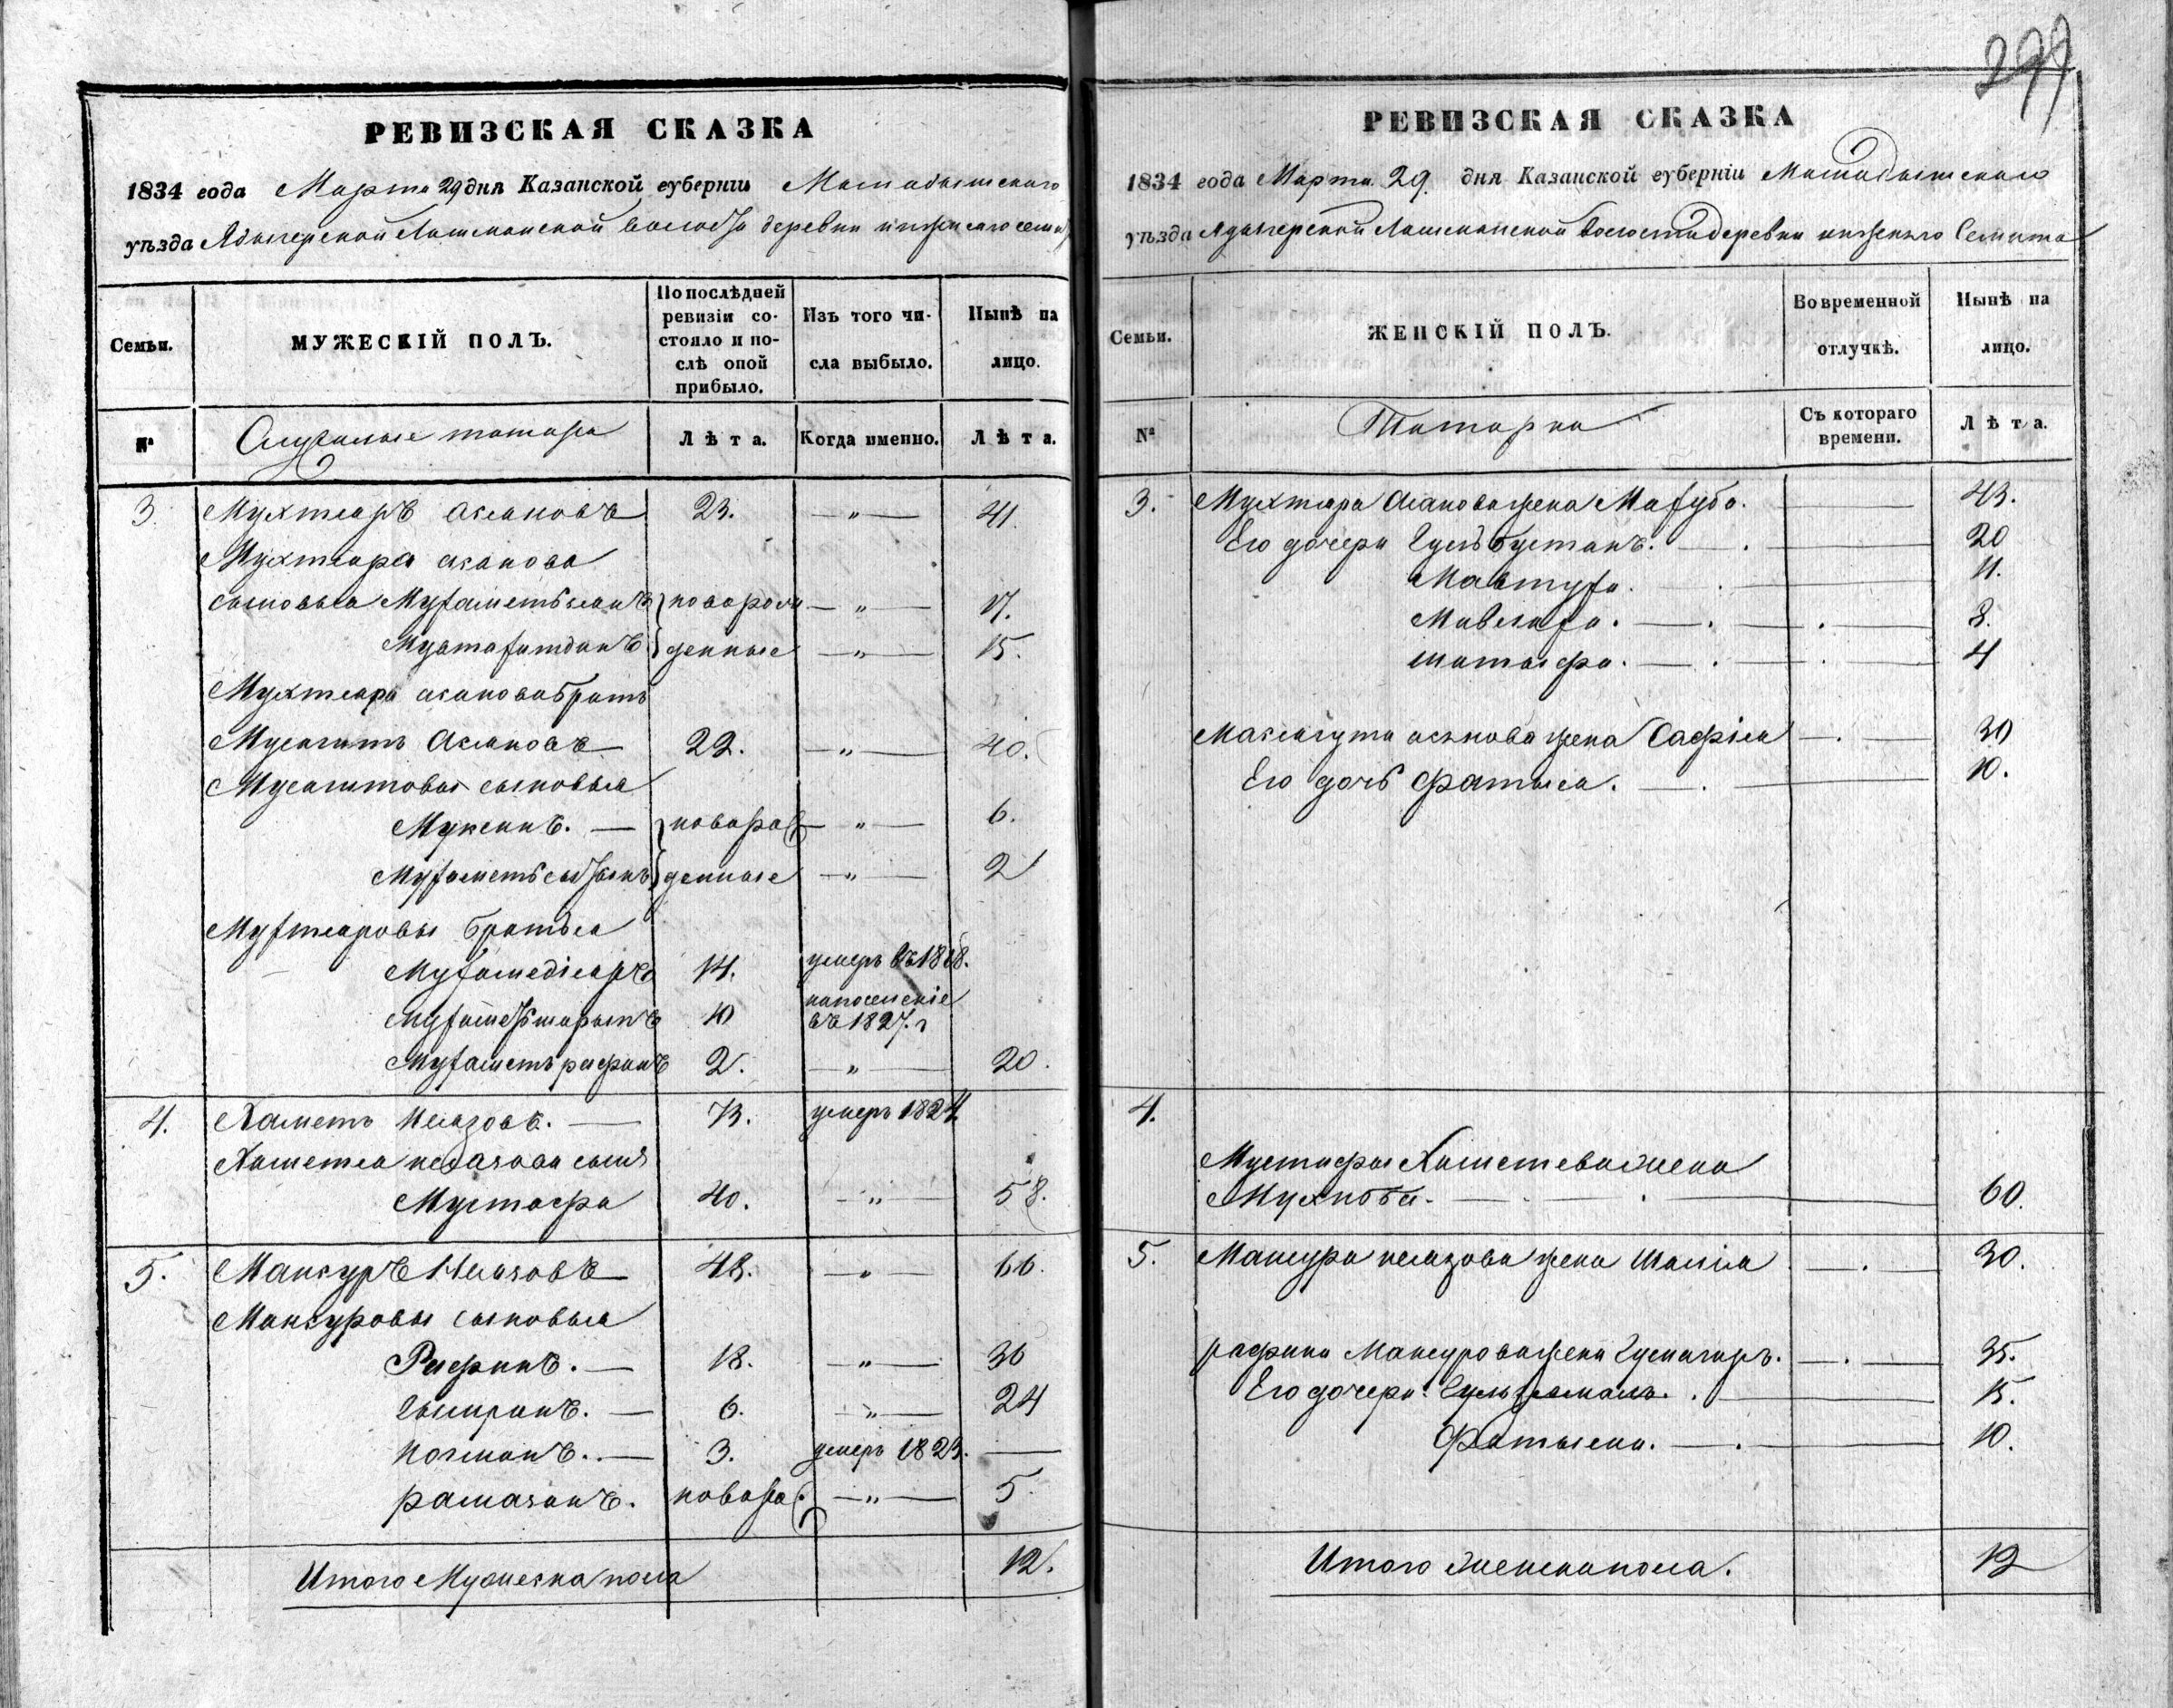 299
РЕВИЗСКАЯ СКАЗКА
1834 года Марта 29 дня Казанской губерніи Мамадышского
уѣзда Адаперской Лашманской волости деревни нижняго Семи
Семьи.
МУЖЕСКІЙ ПОЛЪ.
По послѣдней ревизіи состояло и послѣ оной прибыло.
Изъ того числа выбыло.
Нынѣ на лицо.
№ Служилые татары Лѣта. Когда именно. Лѣта.
3 Мухтаръ Асановъ 23. — „ — 41.
Мухтара асанова
сыновья Мухаметьянъ новорож — „ — 17.
денные — „ — 15.
Мухтара асанова братъ
Мусагитъ Асановъ 22. — „ — 40.
Мусагитовы сыновья
Муксинъ. — новорож — „ — 6.
денные — „ — 2
Мухтаровы братья
Мухамедіаръ 14. умеръ въ 1828.
Мухаметьшарыпъ 10 въ 1827. г
Мухаметърафикъ 2. — „ — 20.
4. Хаметъ Ниазовъ. — 73. умеръ 1824.
Хаметя ніазова сынъ
Мустафа 40. — „ — 58.
5. Мансуръ Ніязовъ 48. — „ — 66.
Мансуровы сыновья
Рафикъ. — 18. — „ — 36
6. — „ — 24
Ногманъ. — 3. умеръ 1823. —
рамазанъ. новорож. — „ — 5.
Итого Мужеска пола 12.
РЕВИЗСКАЯ СКАЗКА
1834 года Марта 29. дня Казанской губерніи Мамадышскаго
уѣзда Адаперской Лашманской волости деревни нижняго Семита
Семьи.
ЖЕНСКІЙ ПОЛЪ.
Во временной отлучкѣ.
Нынѣ на лицо.
№ Татарки Съ котораго времени. Лѣта.
3. Мухтара Асанова жена Махуба. — 43.
Его дочери Гульбустанъ. — 20
Мавтуха. — 11.
8.
4
Максагута асанова жена Сафія — 30
Его дочь Фатыма. — 10.
4.
Мустафы Хаметева жена
60.
5. Мансура ніязова жена — 30.
рафика Мансурова жена — 35.
Его дочери. Гульзямаль. — 15.
10.
Итого женска пола. 12